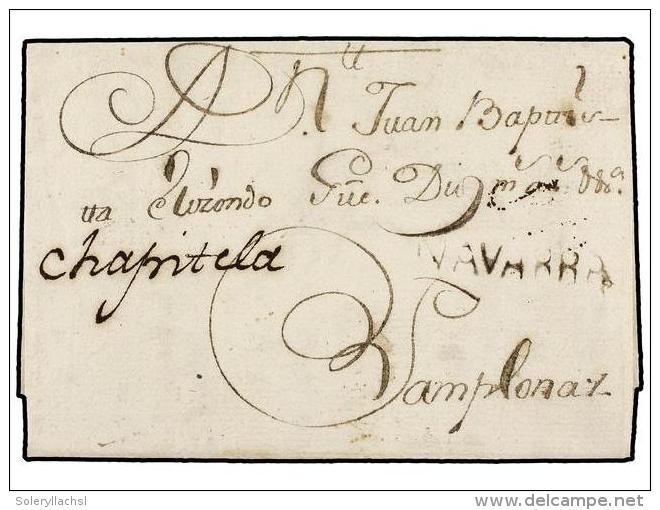 A Dn Juan Baptis-
tta Elizondo Gue. Dios ms as
chapitela
NAVARRA
Pamplona
Soleryllachsl
www.delcampe.net